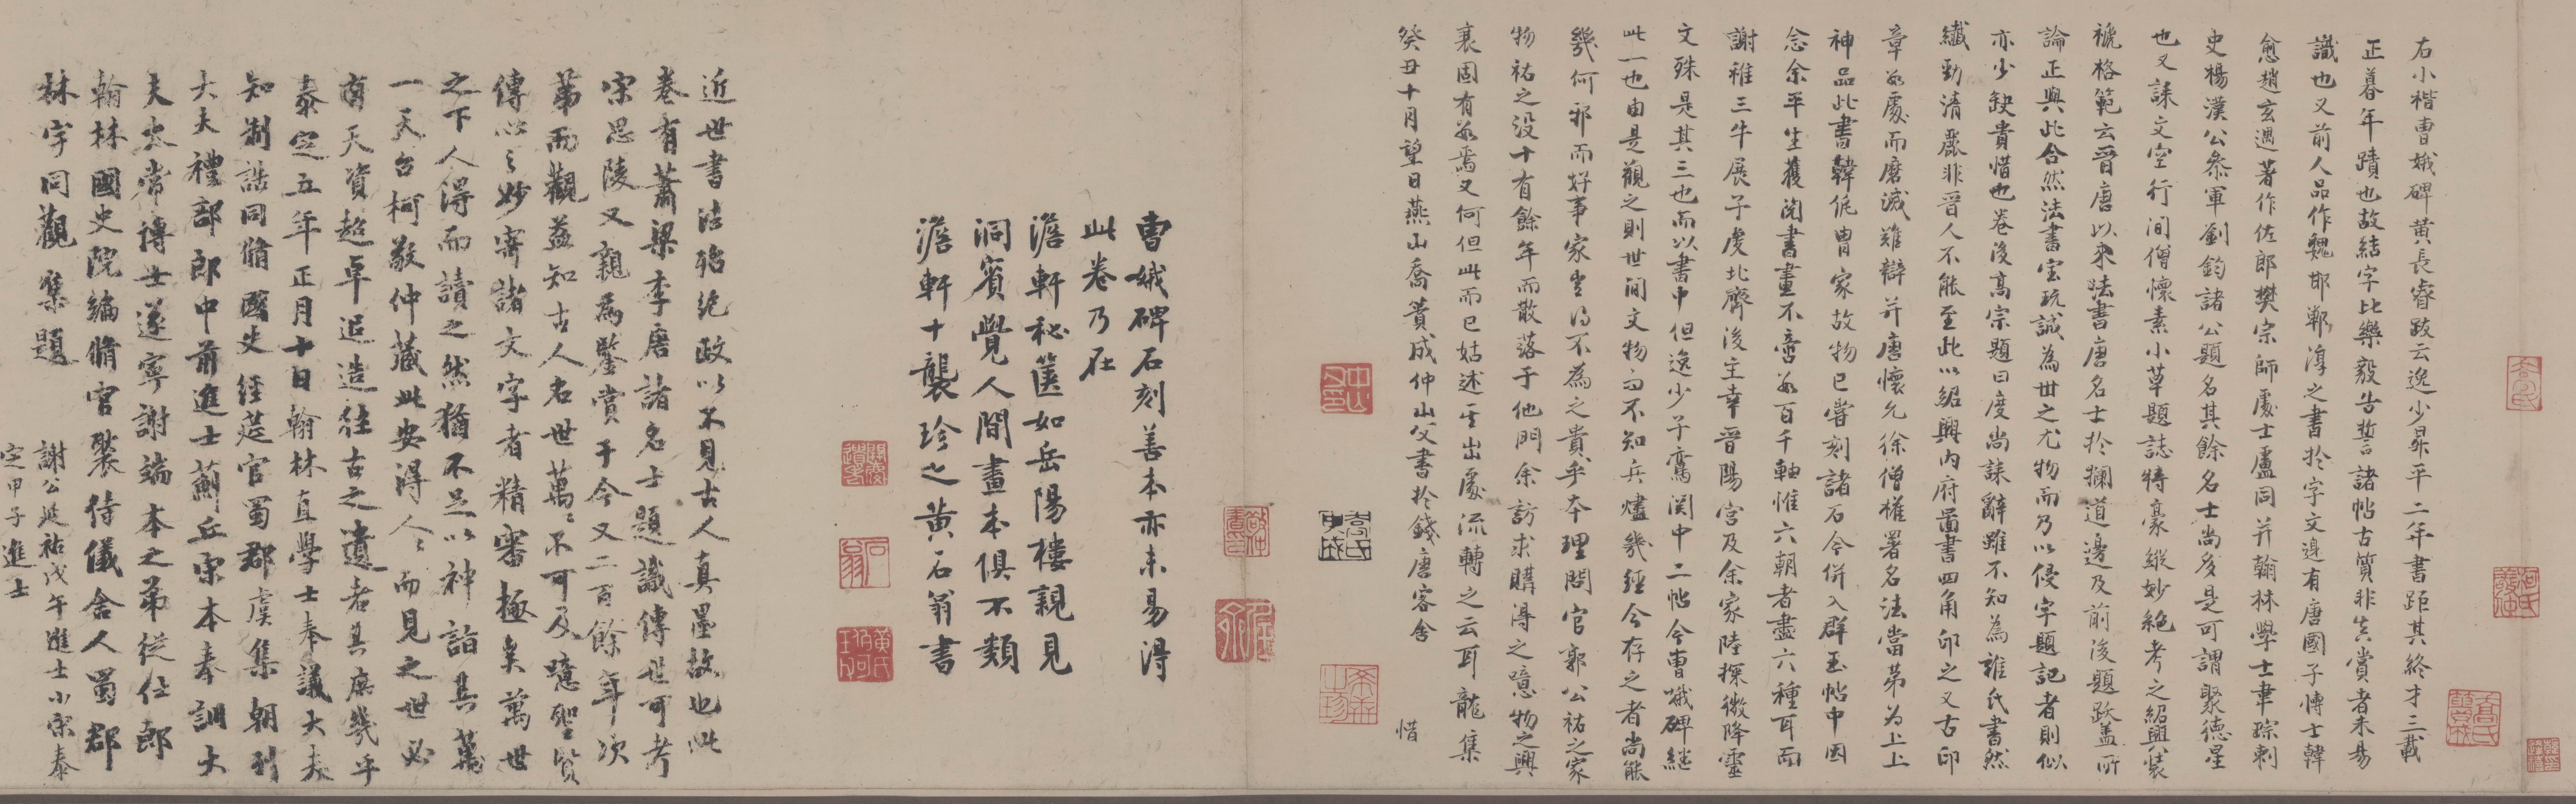 右小楷曹娥碑黄長睿跋云逸少昇平二年書距其終才三載
正暮年蹟也故結字比樂毅告誓諸帖古質非真賞者未易
識也又前人品作魏邯鄲淳之書於字文邊有唐國子博士韓
愈趙玄遇著作佐郎樊宗師處士盧同并翰林學士韋琮刺
史楊漢公叅軍劉鈞諸公題名其餘名士尚多是可謂聚德星
也又誄文空行間僧懷素小草題誌特豪縱妙絶考之紹興裝
褫格範云晉唐以來法書唐名士於攔道邊及前後題跋蓋所
論正與此合然法書宝玩誠為世之尤物而乃以侵字題記者則似
亦少缺貴惜也卷後高宗題曰度尚誄辭雖不知為誰氏書然
纖勁清麗非晉人不能至此以紹興內府啚書四角印之又古印
章数處而磨滅難辯并唐懷允徐僧權署名法當第為上上
神品此書韓侂胄家故物已嘗刻諸石今併入群玉帖中因
念余平生獲閱書畫不啻数百千軸惟六朝者盡六種耳而
謝稚三牛展子虔北齊後主幸晉陽宮及余家陸探微降靈
文殊是其三也而以書中但逸少子鸞閞中二帖今曹娥碑継
此一也由是觀之則世間文物而不知兵燼幾經今存之者尚能
幾何邪而好事家豈得不為之貴乎夲理問官郭公祐之家
物祐之没十有餘年而散落于他門余訪求購得之噫物之興
衰固有数焉又何但此而已姑述其出處流轉之云耳龍集
癸丑十月望日燕山喬蕢成仲山父書於錢唐客舍
惜
曹娥碑石刻善本亦未易得
此卷乃在
澹軒秘篋如岳陽樓親見
洞賓覺人間畫本俱不類
澹軒十襲珍之黄石翁書
近世書法殆絶政以不見古人真墨故也此
卷有蕭梁李唐諸名士題識傳世可考
宋思陵又親為鑒賞于今又二百餘年次
第而觀益知古人名世萬萬不可及噫聖賢
傳心之妙寄諸文字者精審極矣萬世
之下人得而讀之然猶不足以神詣其萬
一天台柯敬仲藏此安得人人而見之世必
有天資超卓追造往古之遺者其庶幾乎
泰定五年正月十日翰林直學士奉議大夫
知制誥同脩國史經筵官蜀郡虞集朝列
大夫禮部郎中前進士薊丘宋本奉訓大
夫太常博士遂寧謝端本之弟從仕郎
翰林國史院編脩官褧侍儀舍人蜀郡
林宇同觀集題
謝公延祐戊午進士小宋泰
定甲子進士